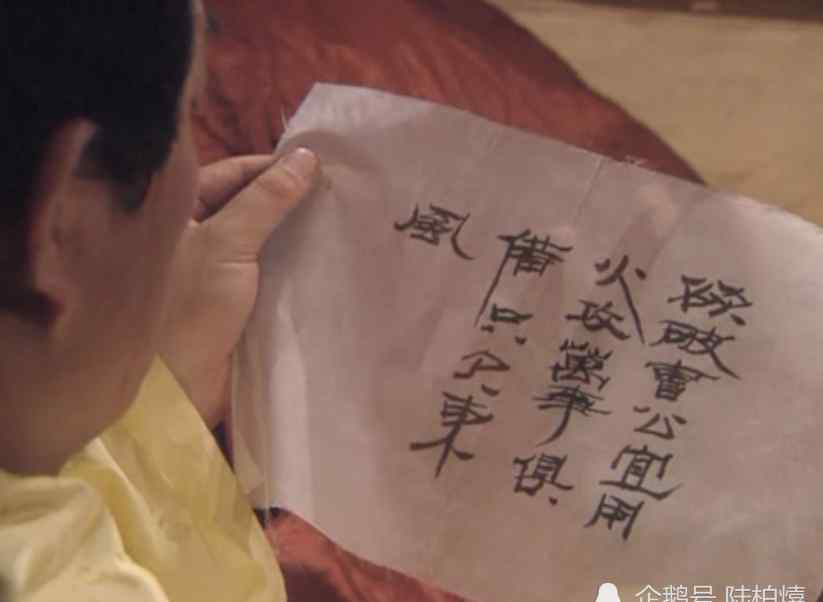 欲破曹公宜用
火攻萬事俱
備只欠東
風
企鹅号 陆柏